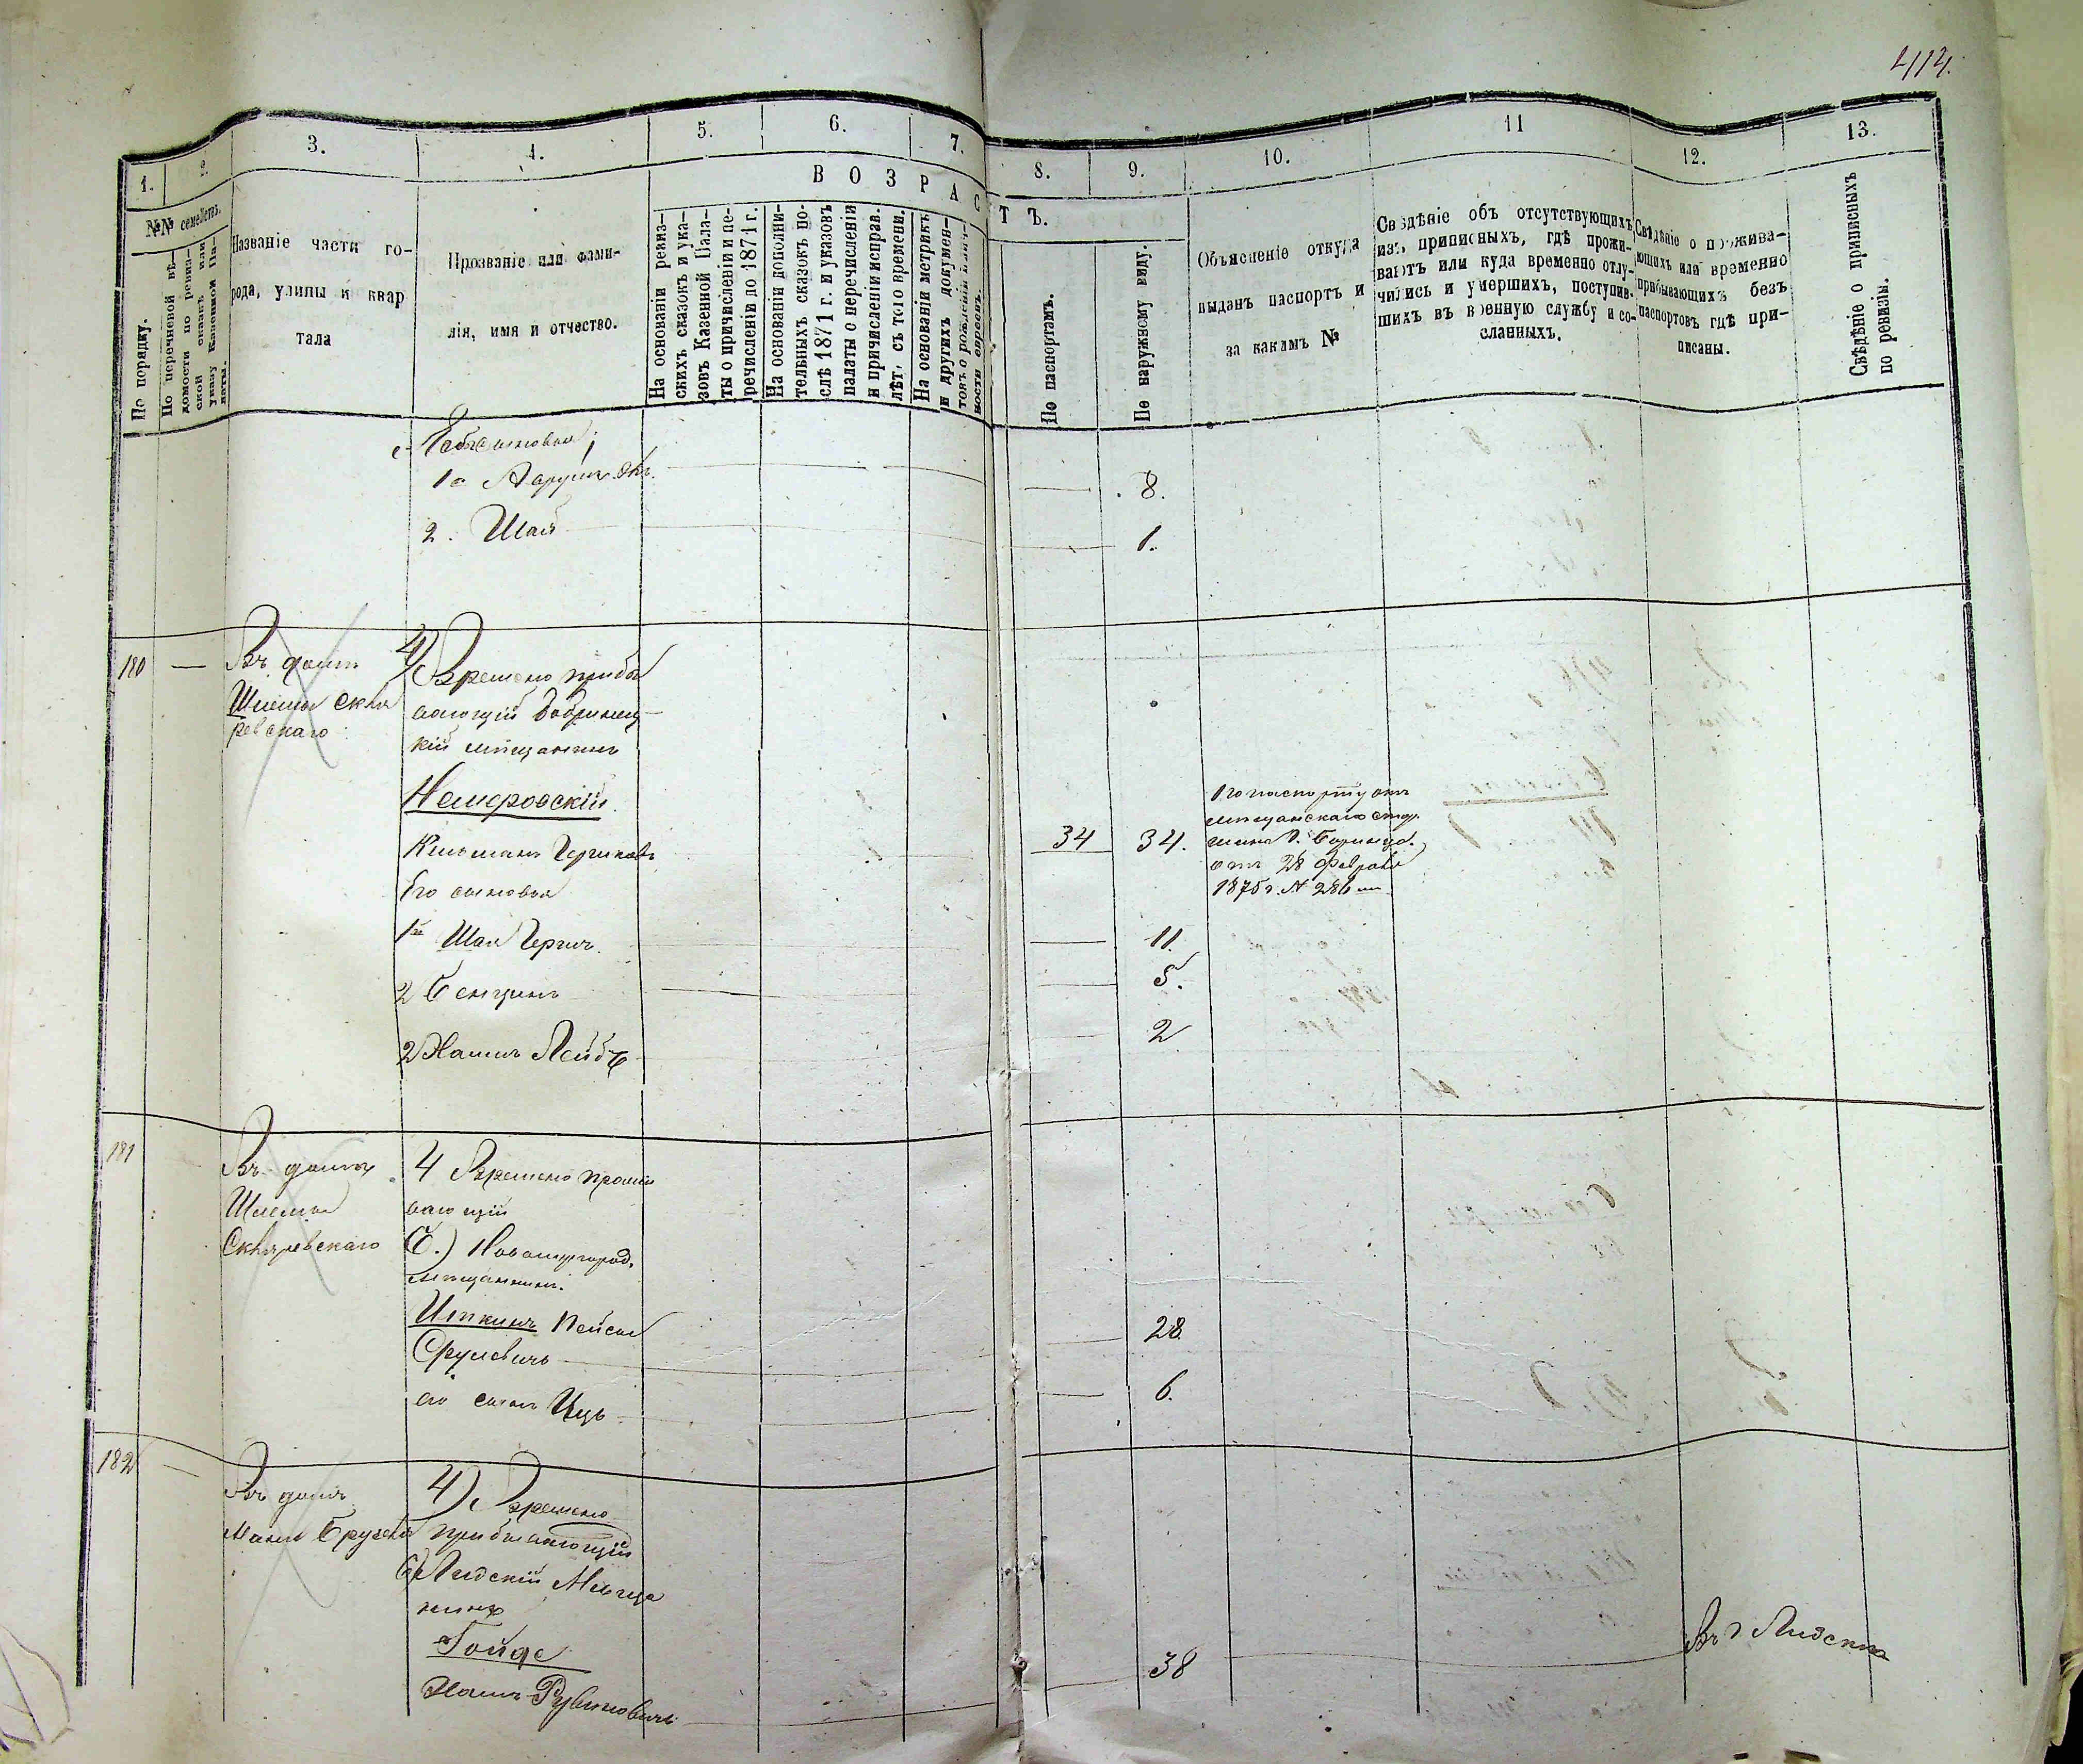 414.
1.
2.
3.
4.
5.
6.
7.
8.
9.
10.
11
12.
13.
ВОЗРАСТЪ.
№№ семействъ.
По порядку.
По перечневой вѣ-
домости по ревиз-
ской сказкѣ или
указу Казенной Па-
латы.
Названіе части го-
рода, улицы и квар
тала
Прозваніе или фами-
лія, имя и отчество.
На основаніи ревиз-
скихъ сказокъ и ука-
зовъ Казенной Пала-
ты о причисленіи и пе-
речисленіи до 1871 г.
На основаніи дополни-
тельныхъ сказокъ по-
слѣ 1871 г. и указовъ
палаты о перечисленіи
и причисленіи исправ.
лѣт, съ того времени.
На основаніи метрикъ
и другихъ докумен-
товъ о рожденіи
По паспортамъ.
По наружному виду.
Объясненіе откуда
выданъ паспортъ и
за какимъ №
Свѣдѣніе объ отсутствующихъ
изъ приписныхъ, гдѣ прожи-
ваютъ или куда временно отлу-
чились и умершихъ, поступив-
шихъ въ военную службу и со-
сланныхъ.
Свѣдѣніе о прожива-
ющихъ или временно
прибывающихъ безъ
паспортовъ гдѣ при-
писаны.
Свѣдѣніе о приписныхъ
по ревизіи.
сыновья
1й 8.
2. Шая 1.
180 — Въ домѣ
Шлемы Скля
ревскаго
4) Временно прибы
вающій Бобринец-
кій мѣщанинъ
Немеровскій
Кельманъ 34 34.
По паспорту отъ
мѣщанскаго
отъ 28 Февраля
1875 г. № 286
Его сыновья
1й Шая Герш. 11.
2 Бенціинъ 5.
2 Хаимъ Лейбъ 2
181 Въ домѣ
Шлемы
Скляревскаго
4 Временно прожи
вающій
Новомиргород.
мѣщанинъ.
Иткинъ Пейсах
Срулевичъ 28.
его сынъ Ицъ 6.
182 — Въ домѣ
4) Временно
прибывающій
Лидскій Мѣща
нинъ
Гойде
Хаимъ Рувиновичъ 38
Въ г Лидскѣ